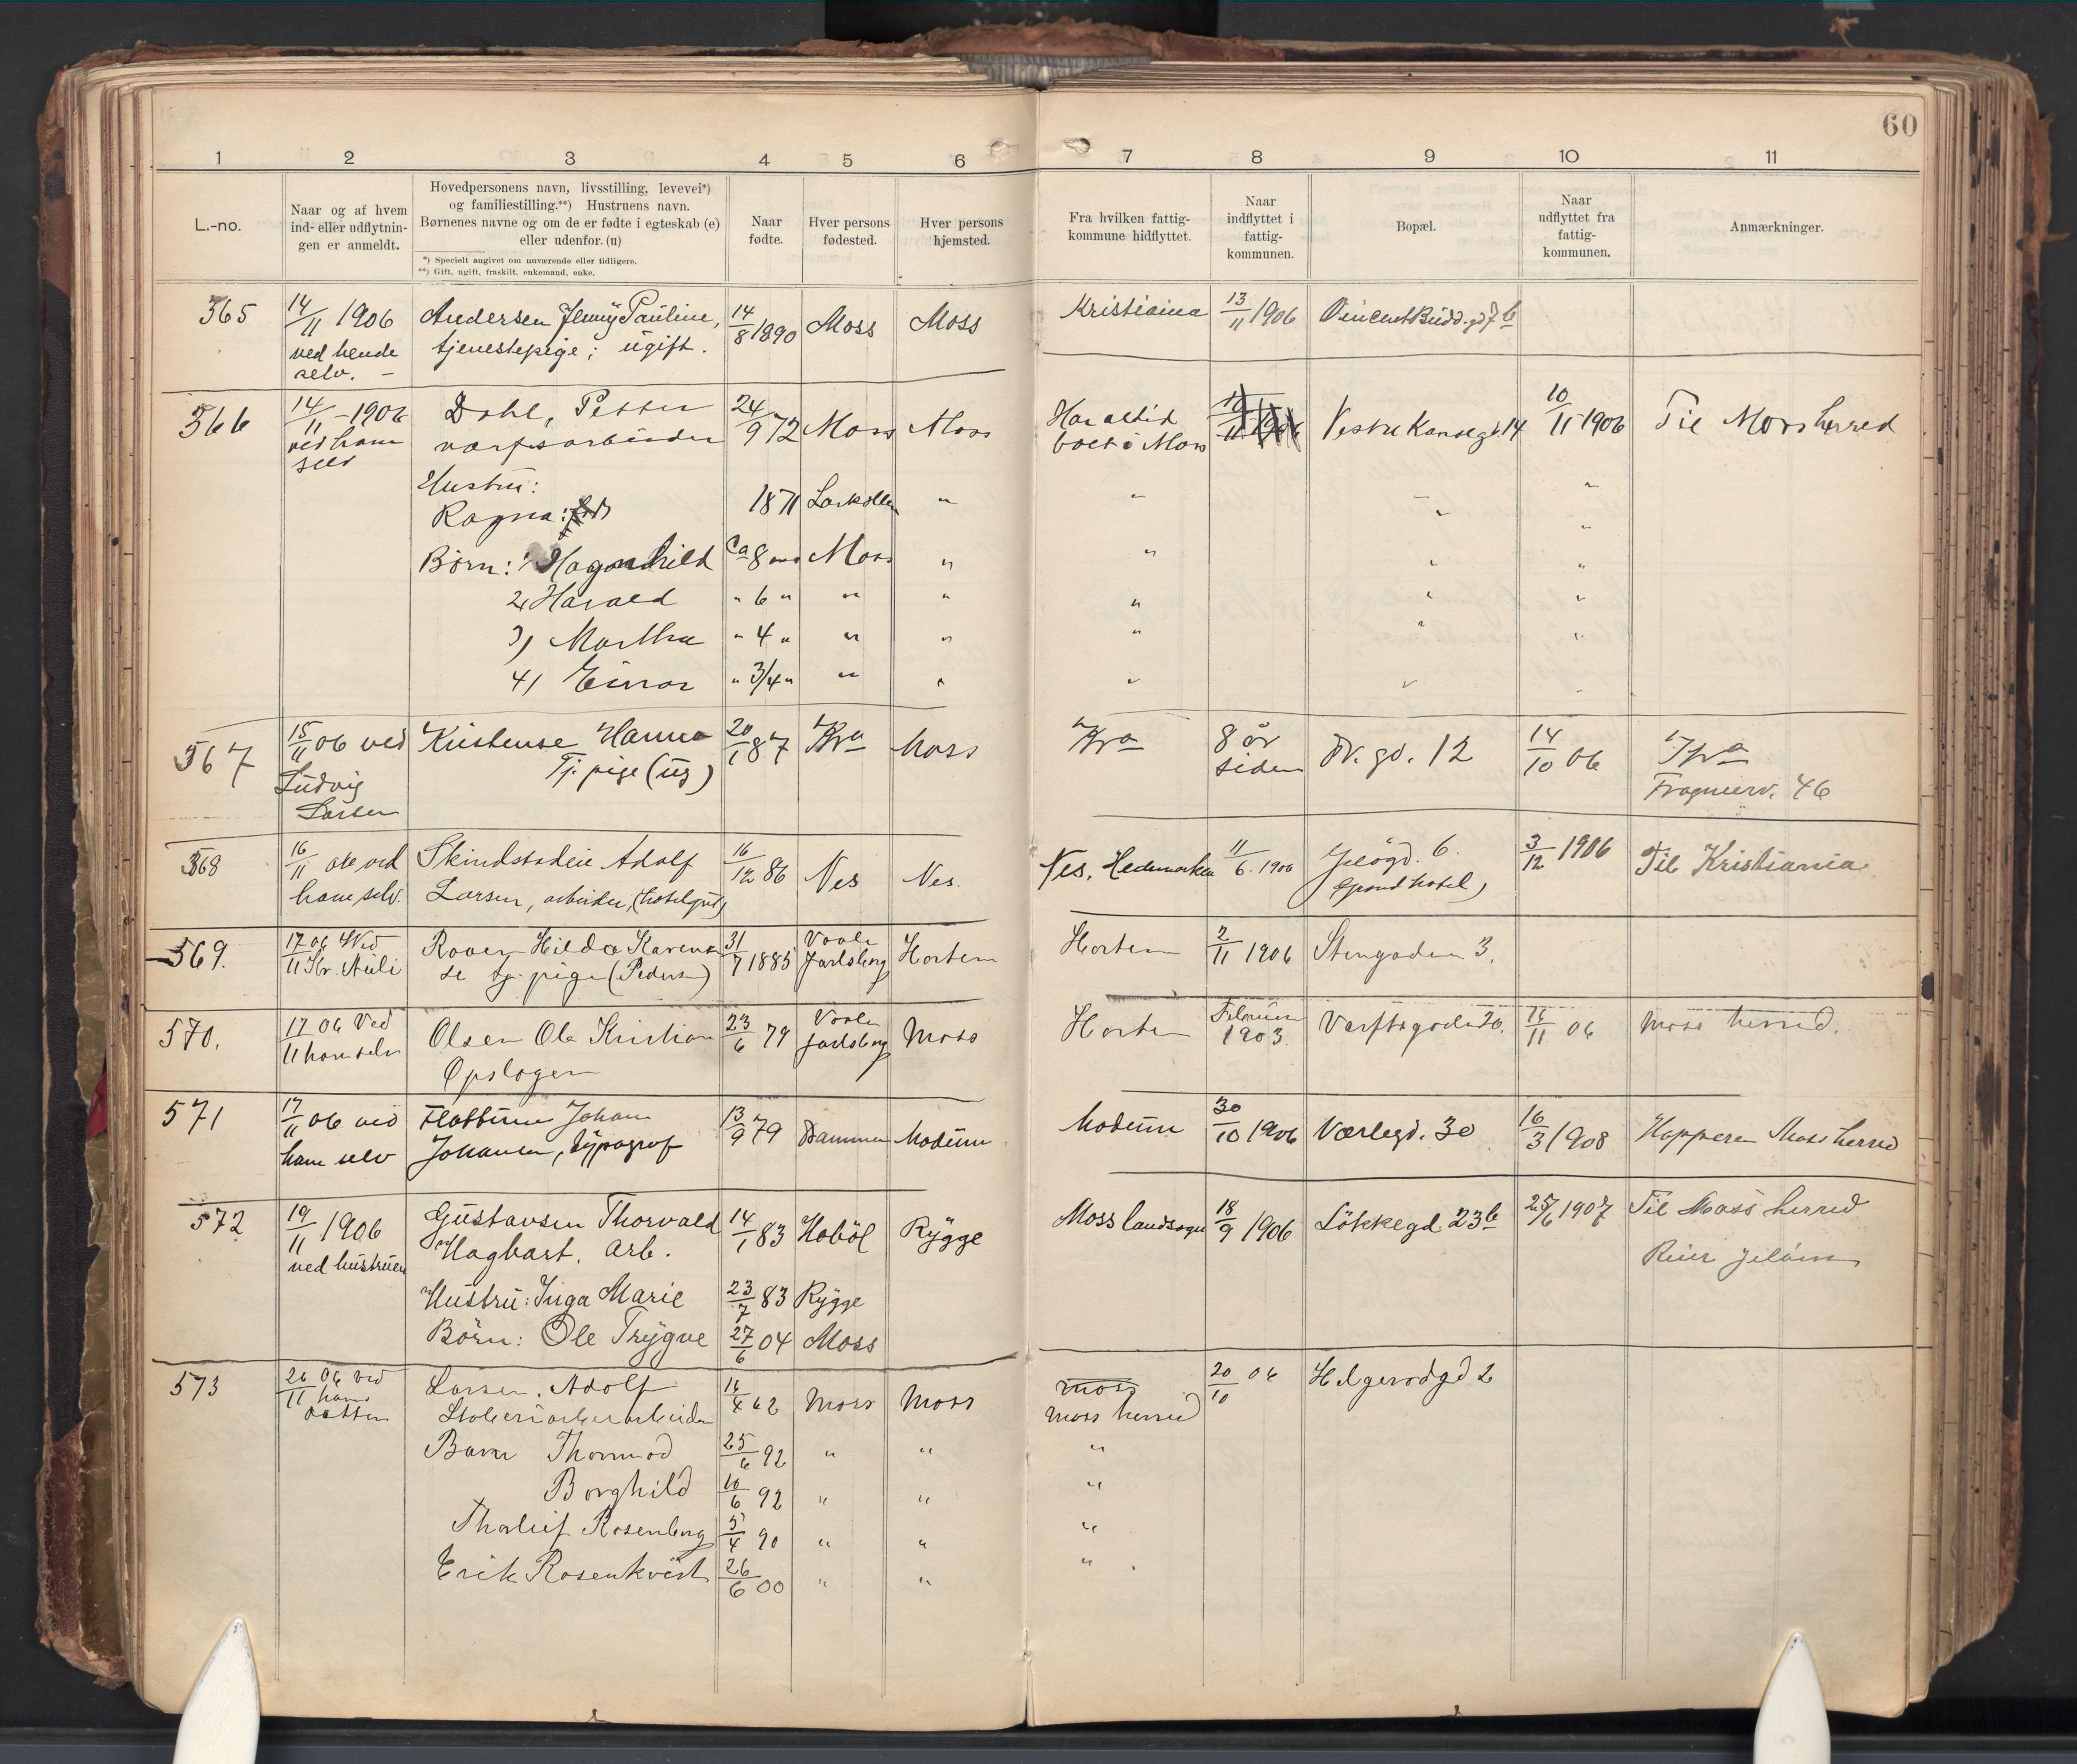 60
1 2 3 4 5 6 7 8 9 10 11
L.-no.
Naar og af hvem
ind- eller udflytnin-
gen er anmeldt.
Hovedpersonens navn, livsstilling, levevei*)
og familiestilling.**) Hustruens navn.
Børnenes navne og om de er fødte i egteskab (e)
eller udenfor. (u)
*) Specielt angivet om nuværende eller tidligere.
**) Gift, ugift, fraskilt, enkemand, enke.
Naar
fødte.
Hver persons
fødested.
Hver persons
hjemsted.
Fra hvilken fattig-
kommune hidflyttet.
Naar
indflyttet i
fattig-
kommunen.
Bopæl.
Naar
udflyttet fra
fattig-
kommunen.
Anmærkninger.
365 14/11 1906 Andersen Jenny Pauline, 14/8 1890 Moss Moss Kristiania 13/11 1906 Vincent Budd.gd 7 b
ved hende tjenestepige; ugift.
selv. –
366 14/11 - 1906 Dahl, Petter 24/9 72 Moss Moss Har altid Vestre Kanalgt. 14 10/11 1906 Til Moss herred
ved ham verftsarbeider boet i Moss
selv
Hustru:
Ragna: 1871 Larkollen " "
Børn: 1 Hagnhild Ca 8 Moss " "
2, Harald " 6 " " " "
3) Martha " 4 " " " "
4) Einar " 3/4 " " " "
567 15/11 06 ved Kristense Hanna 20/1 87 Kra Moss Kra 8 år Dr. gd. 12 14/10 06 Kra
Ludvig Tj. pige (ug) siden Frognerv. 46
Larsen
368 16/11 06 ved Skindstadeie Adolf 16/12 86 Nes Nes. Nes, Hedemarken 11/6 1906 Jeløgd. 6. 3/12 1906 Til Kristiania
ham selv. Larsen, arbeider, (hotelgut) Grand hotel)
569. 17/11 06 Ved Roven Hilda Karen 31/7 1885 Vaale Horten Horten 2/11 1906 Stengaden 3.
Hr. tj. pige (Pedersen) Jarlsberg
570. 17/11 06 Ved Olsen Ole Kristian 23/6 79 Vaale Moss Horten Februar Værftsgaden 20. 16/11 06 Moss herred.
ham selv Opslager Jarlsberg 1903
571 17/11 06 ved Flattum Johan 13/9 79 Drammen Modum Modum 30/10 1906 Værlegd. 30 16/3 1908 Hoppern Moss herred
ham selv Johansen, typograf
572 19/11 1906 Gustavsen Thorvald 14/1 83 Hobøl Rygge Moss landsogn 18/9 1906 Løkkegd. 23 b 25/6 1907 Til Moss herred
ved hustruen Hagbart. Arb. Reier Jeløen
Hustru: Inga Marie 23/7 83 Rygge
Børn: Ole Trygve 27/6 04 Moss
573 20/11 06 ved Larsen, Adolf 16/4 62 Moss Moss Moss 20/10 06 Helgerødgd 2
hans Støberiarbeider Moss herred
datter
Barn Thormod 25/6 92 " " "
Borghild 10/6 92 " " "
Thorleif Rosenberg 5/4 90 " " "
Erik Rosenkvist 26/6 00 " " "